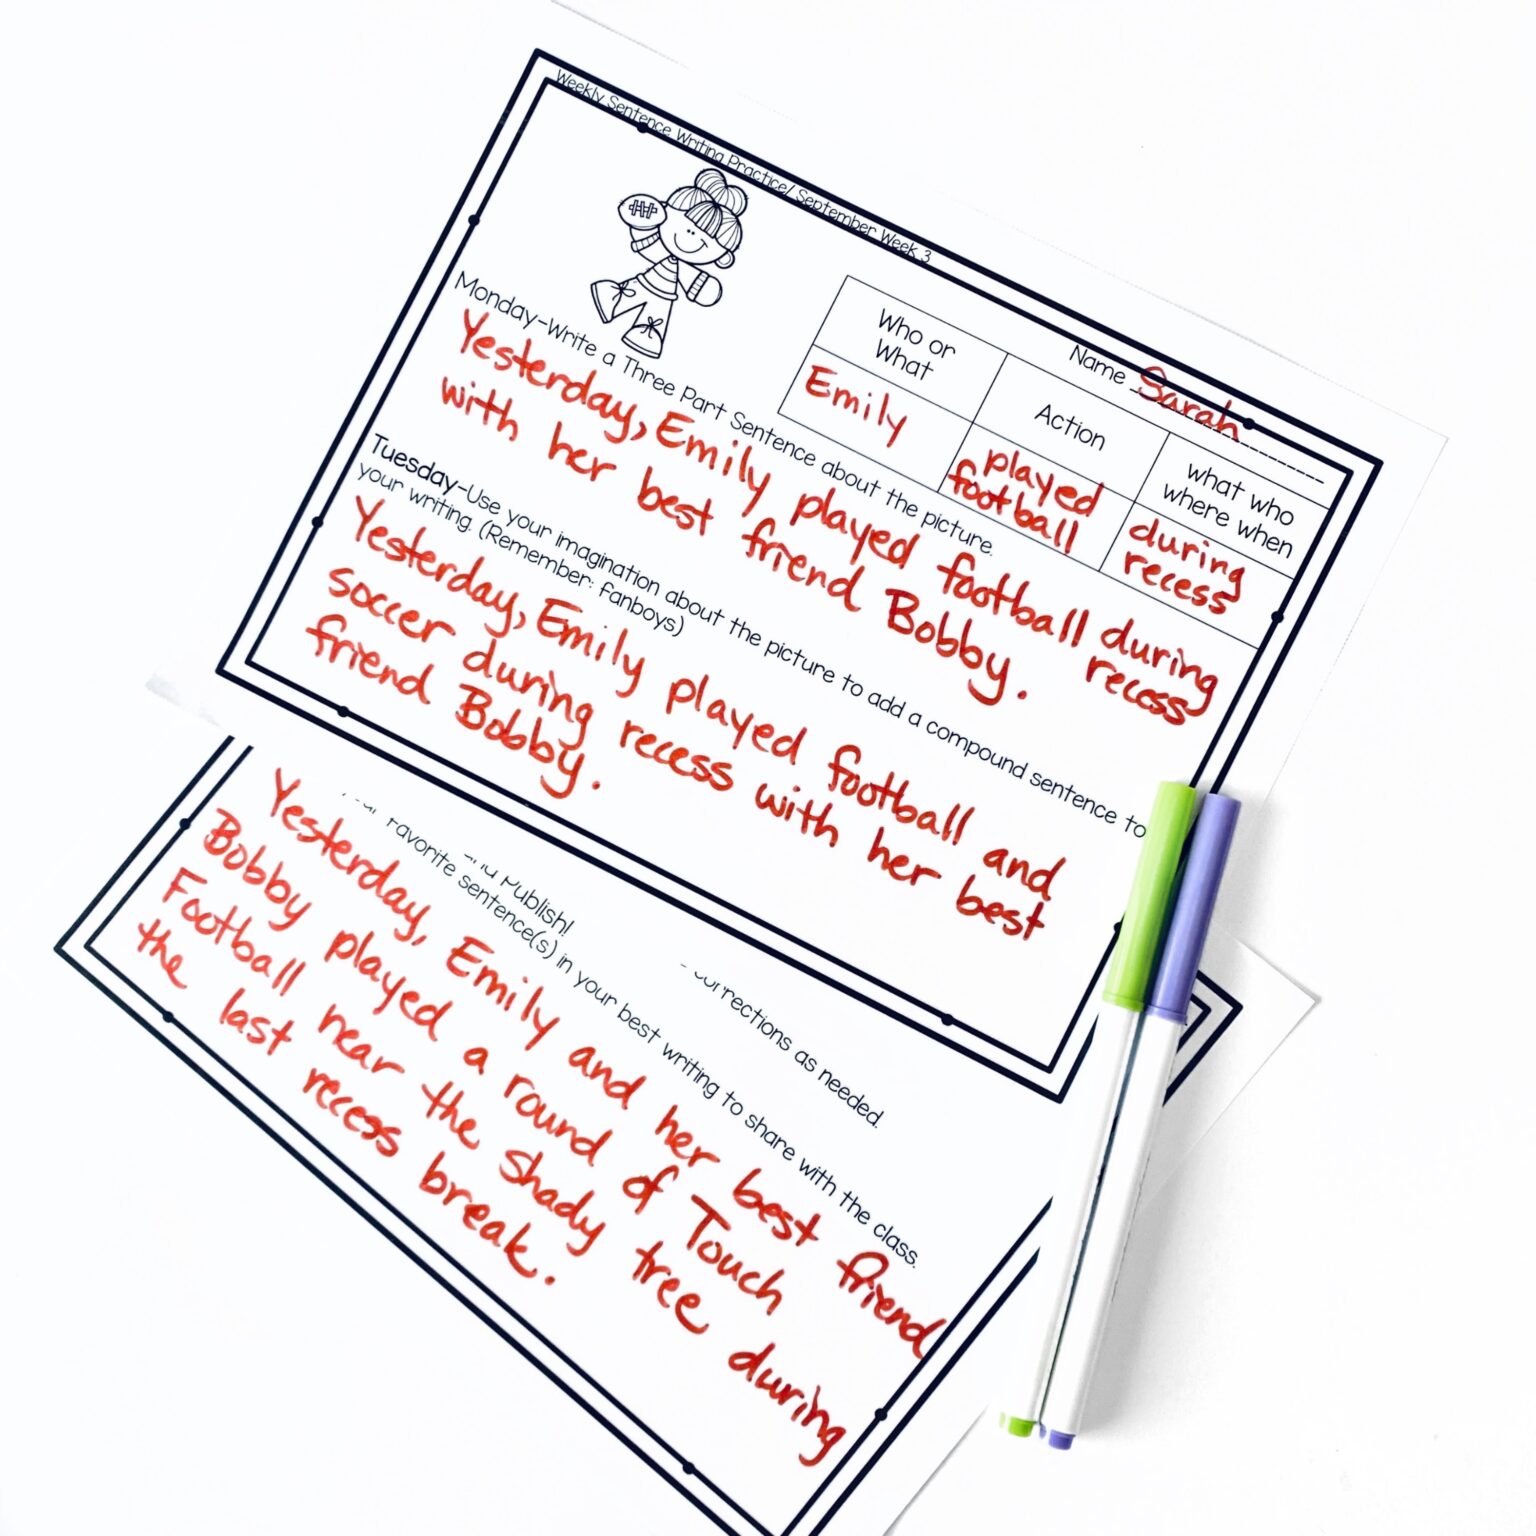 Weekly Sentence Writing Practice/ September Week 3
Name Sarah
Who or
What
Action
what who
where when
Emily
played
football
during
recess
Monday-Write a Three Part Sentence about the picture.
Yesterday, Emily played football during
recess
with her best friend Bobby.
Tuesday-Use your imagination about the picture to add a compound sentence to
your writing. (Remember: fanboys)
Yesterday, Emily played football and
soccer during recess with her best
friend Bobby.
corrections as needed.
Publish!
Favorite sentence(s) in your best writing to share with the class.
Yesterday, Emily and her best friend
Bobby played a round of Touch
Football near the shady tree during
the last recess break.